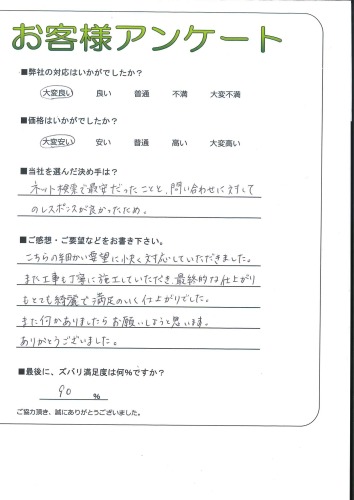 お客様アンケート
■弊社の対応はいかがでしたか?
大変良い 良い 普通 不満 大変不満
■価格はいかがでしたか?
大変安い 安い 普通 高い 大変高い
■当社を選んだ決め手は?
ネット検索で最安だったことと、問い合わせに対して
のレスポンスが良かったため。
■ご感想・ご要望などをお書き下さい。
こちらの細かい要望に快く対応していただきました。
また工事も丁寧に施工していただき、最終的な仕上がり
もとても綺麗で満足のいく仕上がりでした。
また何かありましたらお願いしようと思います。
ありがとうございました。
■最後に、ズバリ満足度は何%ですか?
90 %
ご協力頂き、誠にありがとうございました。